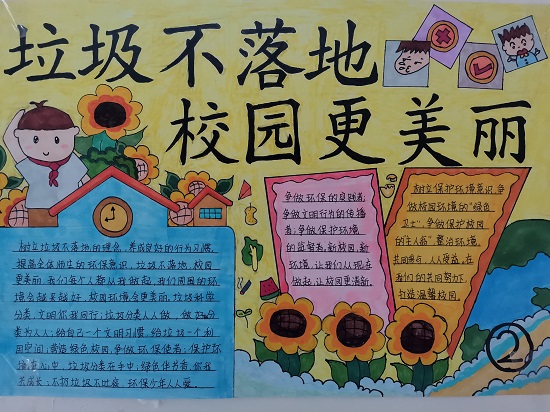 垃圾不落地
校园更美丽
树立垃圾不落地的理念，养成良好的行为习惯，
提高全体师生的环保意识，垃圾不落地，校园
更美丽，我们每个人都从我做起，我们周围的环
境会越来越好，校园环境会更美丽，垃圾新举
分类，文明你我同行；垃圾分类人人做，做好分
类为人人；给自己一个文明习惯，给垃圾一个利
用空间；营造绿色校园，争做环保使者；保护环
境在心中，垃圾分类在手中；绿色伴书香，你我
共成长；不扔垃圾不吐痰，环保少年人人爱。
争做环保的宣践者，
争做文明行为的传播
者，争做保护环境
的监督者，新校园，新
环境，让我们从现在
做起，让校园更清新。
树立保护环境意识，争
做校园环境的“绿色
卫士”，争做保护校园
的主人翁”整治环境，
共同参与，人人受益，在
我们的共同努力下，
打造温馨校园。
②